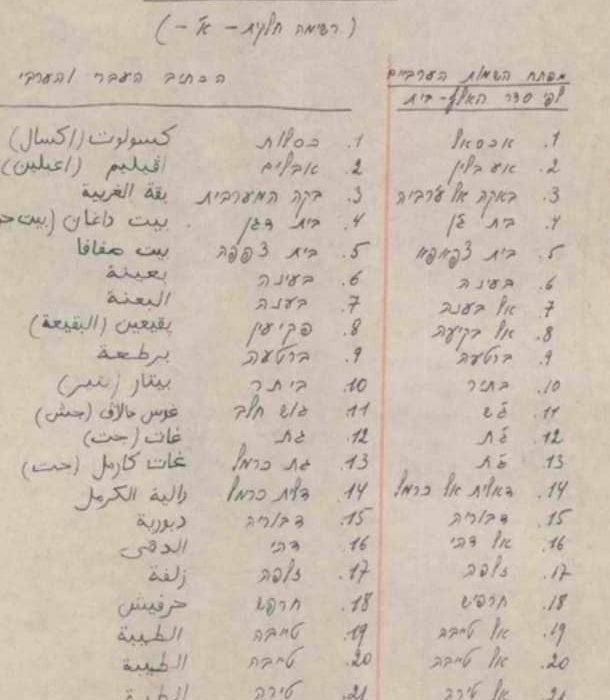 (רשימה חלקית - א' -)
מפתח השמות הערביים הכתיב העברי והערבי
לפי סדר האלף-בית
1. אכסאל 1. כסלות كسولوت (اكسال)
2. אעבלין 2. אבלים افيليم (اعبلين)
3. באקה אל ע'רביה 3. בקה המערבית بقة الغربية
4. בית ג'ן 4. בית דגן بيت داغان
5. בית צפאפא 5. בית צפפה بيت صفافا
6. בעינה 6. בעינה بعينة
7. אל בענה 7. בענה البعنة
8. אל בקיעה 8. פקיעין بقيعين (البقيعة)
9. ברטעה 9. ברטעה برطعة
10. בתיר 10. ביתר بيتار (بتير)
11. ג'ש 11. גוש חלב غوش حالاف (جش)
12. ג'ת 12. גת غات (جت)
13. ג'ת 13. גת כרמל غات كارمل (جت)
14. דאלית אל כרמל 14. דלית כרמל دالية الكرمل
15. דבוריה 15. דבוריה دبورية
16. אל דהי 16. דהי الدهى
17. זלפה 17. זלפה زلفة
18. חרפיש 18. חרפש حرفيش
19. אל טייבה 19. טייבה الطيبة
20. אל טייבה 20. טייבה الطيبة
21. אל טירה 21. טירה